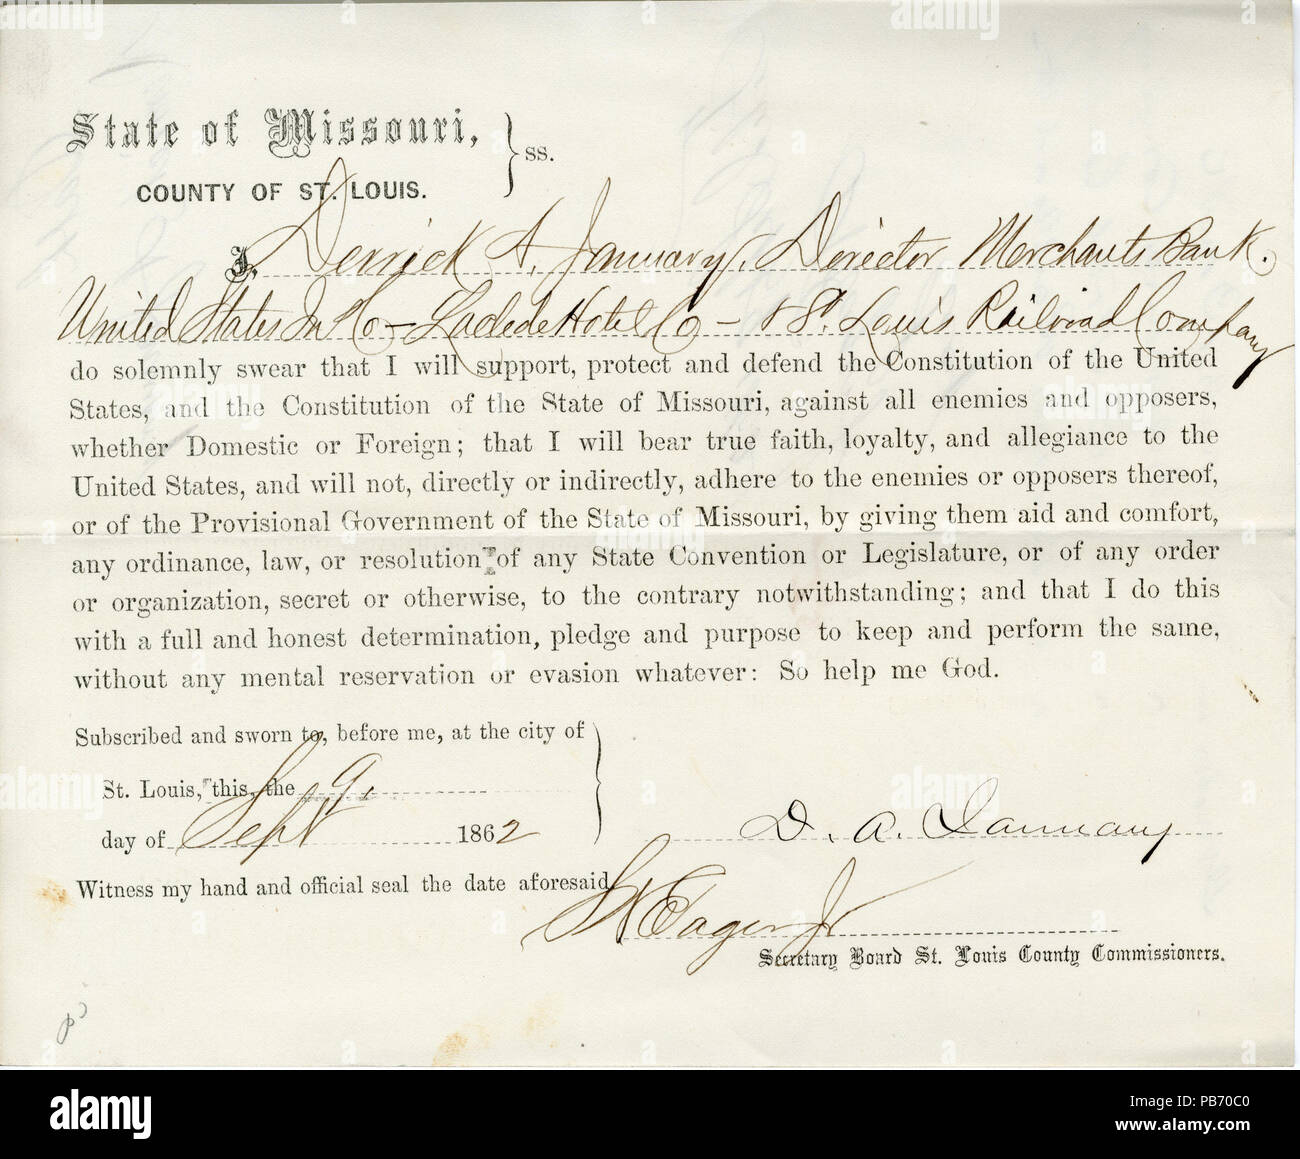 State of Missouri, } ss.
COUNTY OF ST. LOUIS.
I, Derrick A. January, Director Merchants Bank.
United States In Co – Laclede Hotel Co – & St. Louis Railroad Company
do solemnly swear that I will support, protect and defend the Constitution of the United
States, and the Constitution of the State of Missouri, against all enemies and opposers,
whether Domestic or Foreign; that I will bear true faith, loyalty, and allegiance to the
United States, and will not, directly or indirectly, adhere to the enemies or opposers thereof,
or of the Provisional Government of the State of Missouri, by giving them aid and comfort,
any ordinance, law, or resolution of any State Convention or Legislature, or of any order
or organization, secret or otherwise, to the contrary notwithstanding; and that I do this
with a full and honest determination, pledge and purpose to keep and perform the same,
without any mental reservation or evasion whatever: So help me God.
Subscribed and sworn to, before me, at the city of
St. Louis, this, the 9.
day of Sept 1862
D. A. January
Witness my hand and official seal the date aforesaid,
Eager Jr
Secretary Board St. Louis County Commissioners.
alamy
Image ID: PB70C0
www.alamy.com